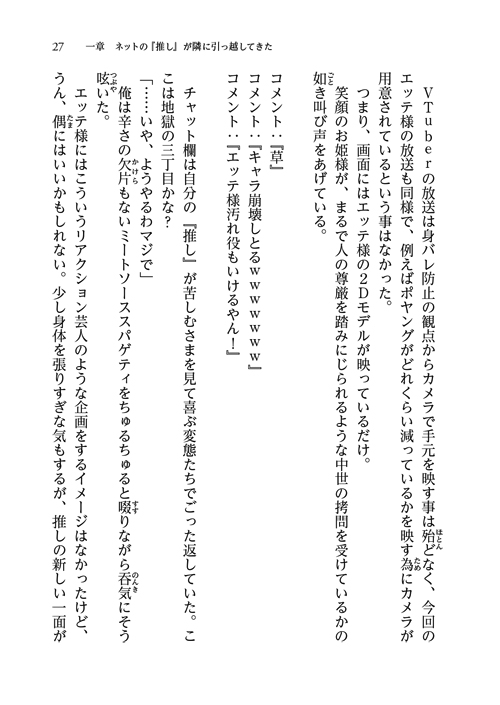 27　一章　ネットの『推し』が隣に引っ越してきた
　VTuberの放送は身バレ防止の観点からカメラで手元を映す事は殆どなく、今回の
エッテ様の放送も同様で、例えばポヤングがどれくらい減っているかを映す為にカメラが
用意されているという事はなかった。
　つまり、画面にはエッテ様の２Ｄモデルが映っているだけ。
　笑顔のお姫様が、まるで人の尊厳を踏みにじられるような中世の拷問を受けているかの
如き叫び声をあげている。
コメント：『草』
コメント：『キャラ崩壊しとるｗｗｗｗｗｗｗ』
コメント：『エッテ様汚れ役もいけるやん！』
　チャット欄は自分の『推し』が苦しむさまを見て喜ぶ変態たちでごった返していた。こ
こは地獄の三丁目かな？
「……いや、ようやるわマジで」
　俺は辛さの欠片もないミートソーススパゲティをちゅるちゅると啜りながら呑気にそう
呟いた。
　エッテ様にはこういうリアクション芸人のような企画をするイメージはなかったけど、
うん、偶にはいいかもしれない。少し身体を張りすぎな気もするが、推しの新しい一面が